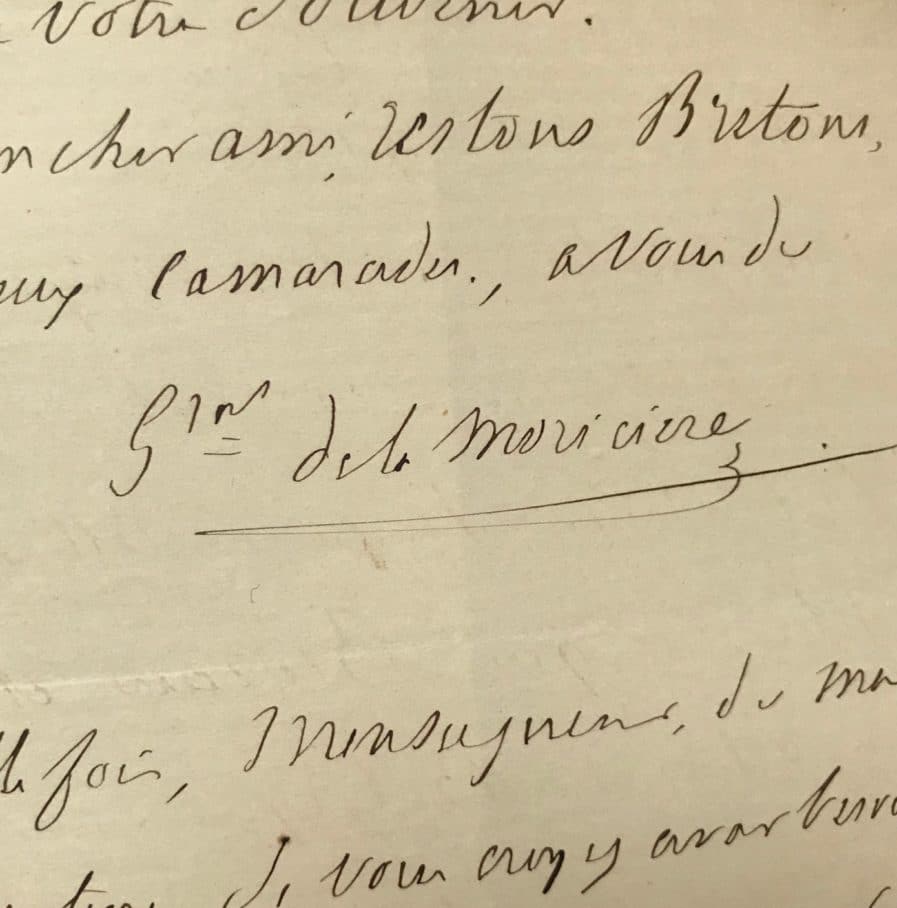 votre souvenir.
cher ami, restons Bretons,
camarades, a vous de
G^al de la Moricière
fois, Monseigneur, de ma
si vous croyez avoir besoin